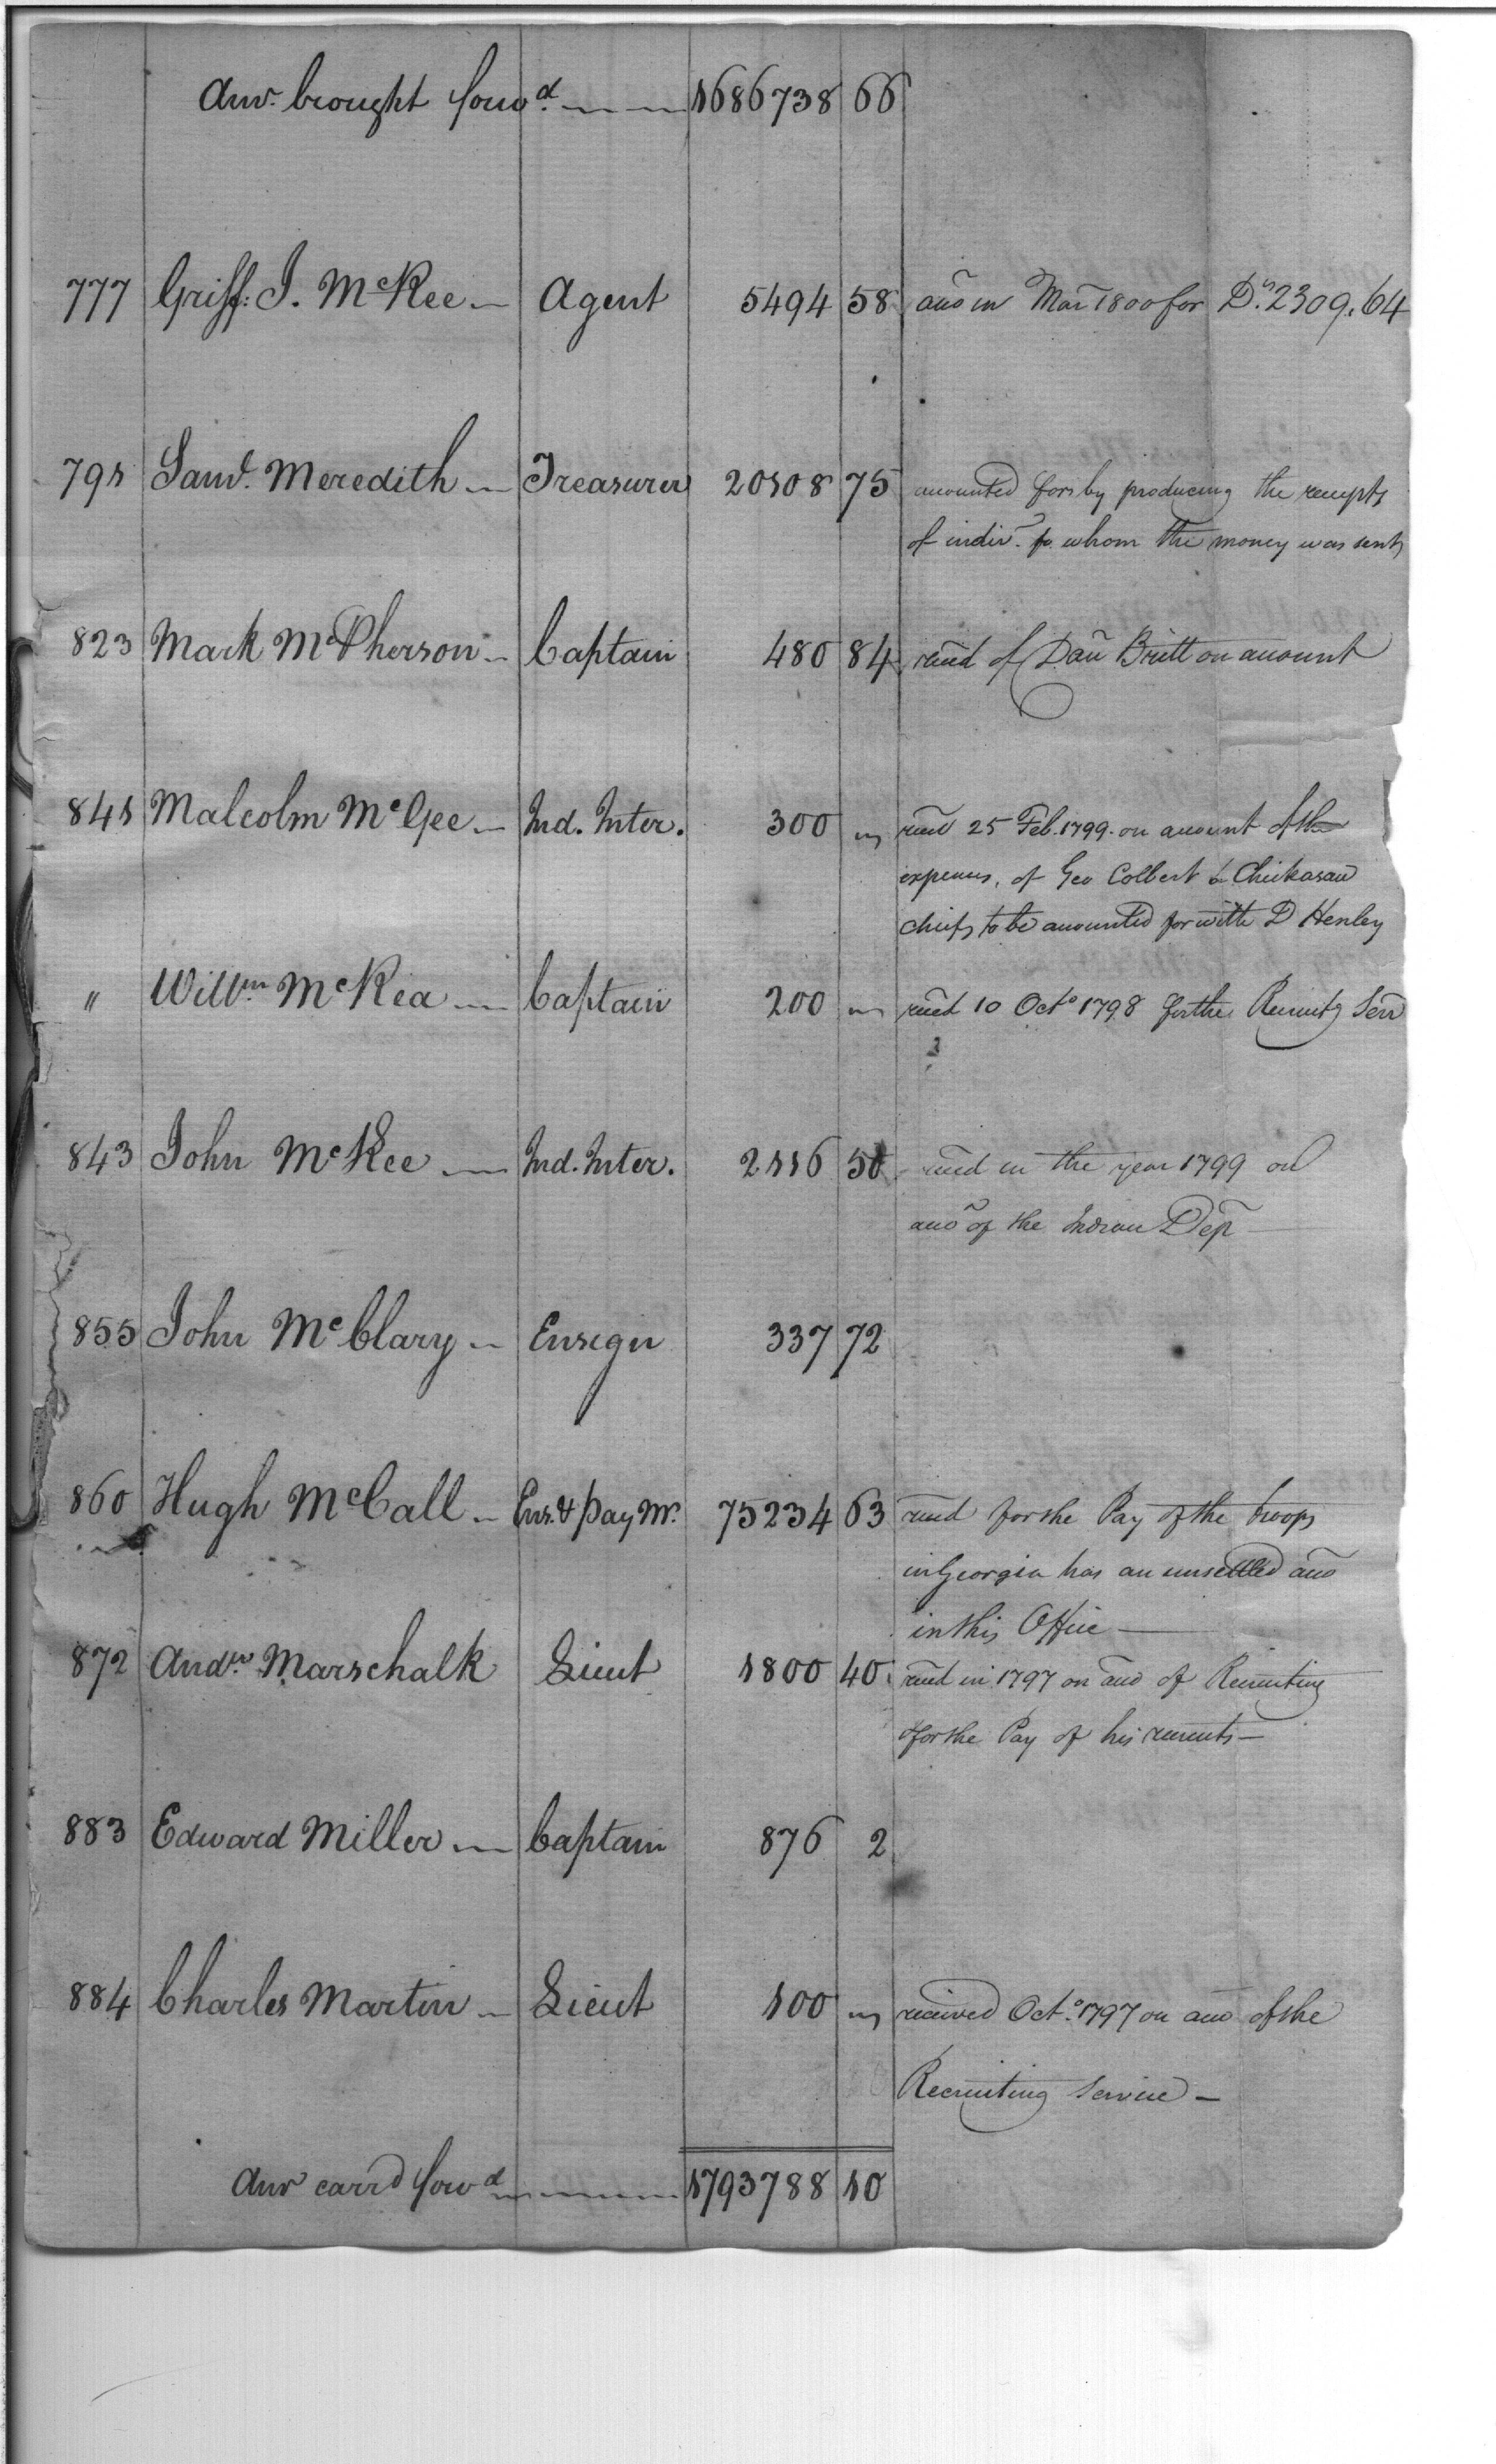 Amt. brought forwd. 1686738 66
777 Griff: J. McKee Agent 5494 58 acco in Mar 1800 for Ds. 2309.64
791 Saml. Meredith Treasurer 20108 75 accounted for by producing the receipts
of indivs. to whom the money was sent
823 Mark McPherson Captain 480 84 recd of Dan Britt on account
841 Malcolm McGee Ind. Inter. 300 " recd 25 Feb. 1799. on account of the
expenses, of Geo Colbert & Chickasaw
chiefs to be accounted for with D Henley
" Willm McRea Captain 200 " recd 10 Octo 1798 for the Recruitg Serv
843 John McKee Ind. Inter. 2116 50 recd in the year 1799 on
acco of the Indian Dep
855 John McClary Ensign 337 72
860 Hugh McCall Ens. & pay Mr. 75234 63 recd for the Pay of the troops
in Georgia has an unsettled acco
in this Office
872 Andw. Marschalk Lieut 1800 40 recd in 1797 on acco of Recruiting
& for the Pay of his recruits
883 Edward Miller Captain 876 2
884 Charles Martin Lieut 100 " received Octo. 1797 on acco of the
Recruiting Service
Amt carrd forwd 1793788 10